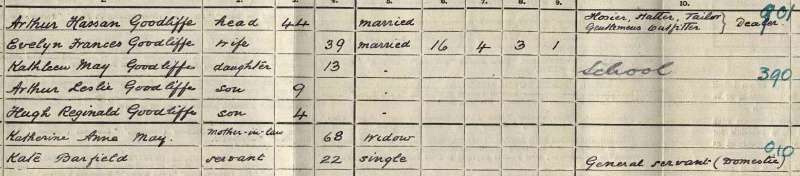 Arthur Hassan Goodliffe head 44 married Hosier, Hatter, Tailor Gentlemens Outfitter } Dealer. 901
Evelyn Frances Goodliffe wife 39 married 16 4 3 1
Kathleen May Goodliffe daughter 13 - School 390
Arthur Leslie Goodliffe son 9 -
Hugh Reginald Goodliffe son 4 -
Katherine Anne May. mother-in-law 68 widow
Kate Barfield servant 22 single General servant (Domestic) 010